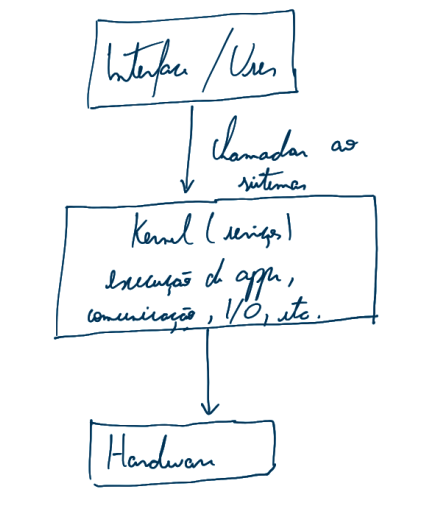 Interface / User
Chamadas ao
sistemas
Kernel (serviços)
execução de apps,
comunicação, I/O, etc.
Hardware